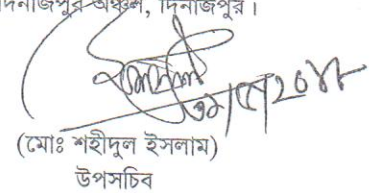 দিনাজপুর অঞ্চল, দিনাজপুর।
২০১৮
(মোঃ শহীদুল ইসলাম)
উপসচিব